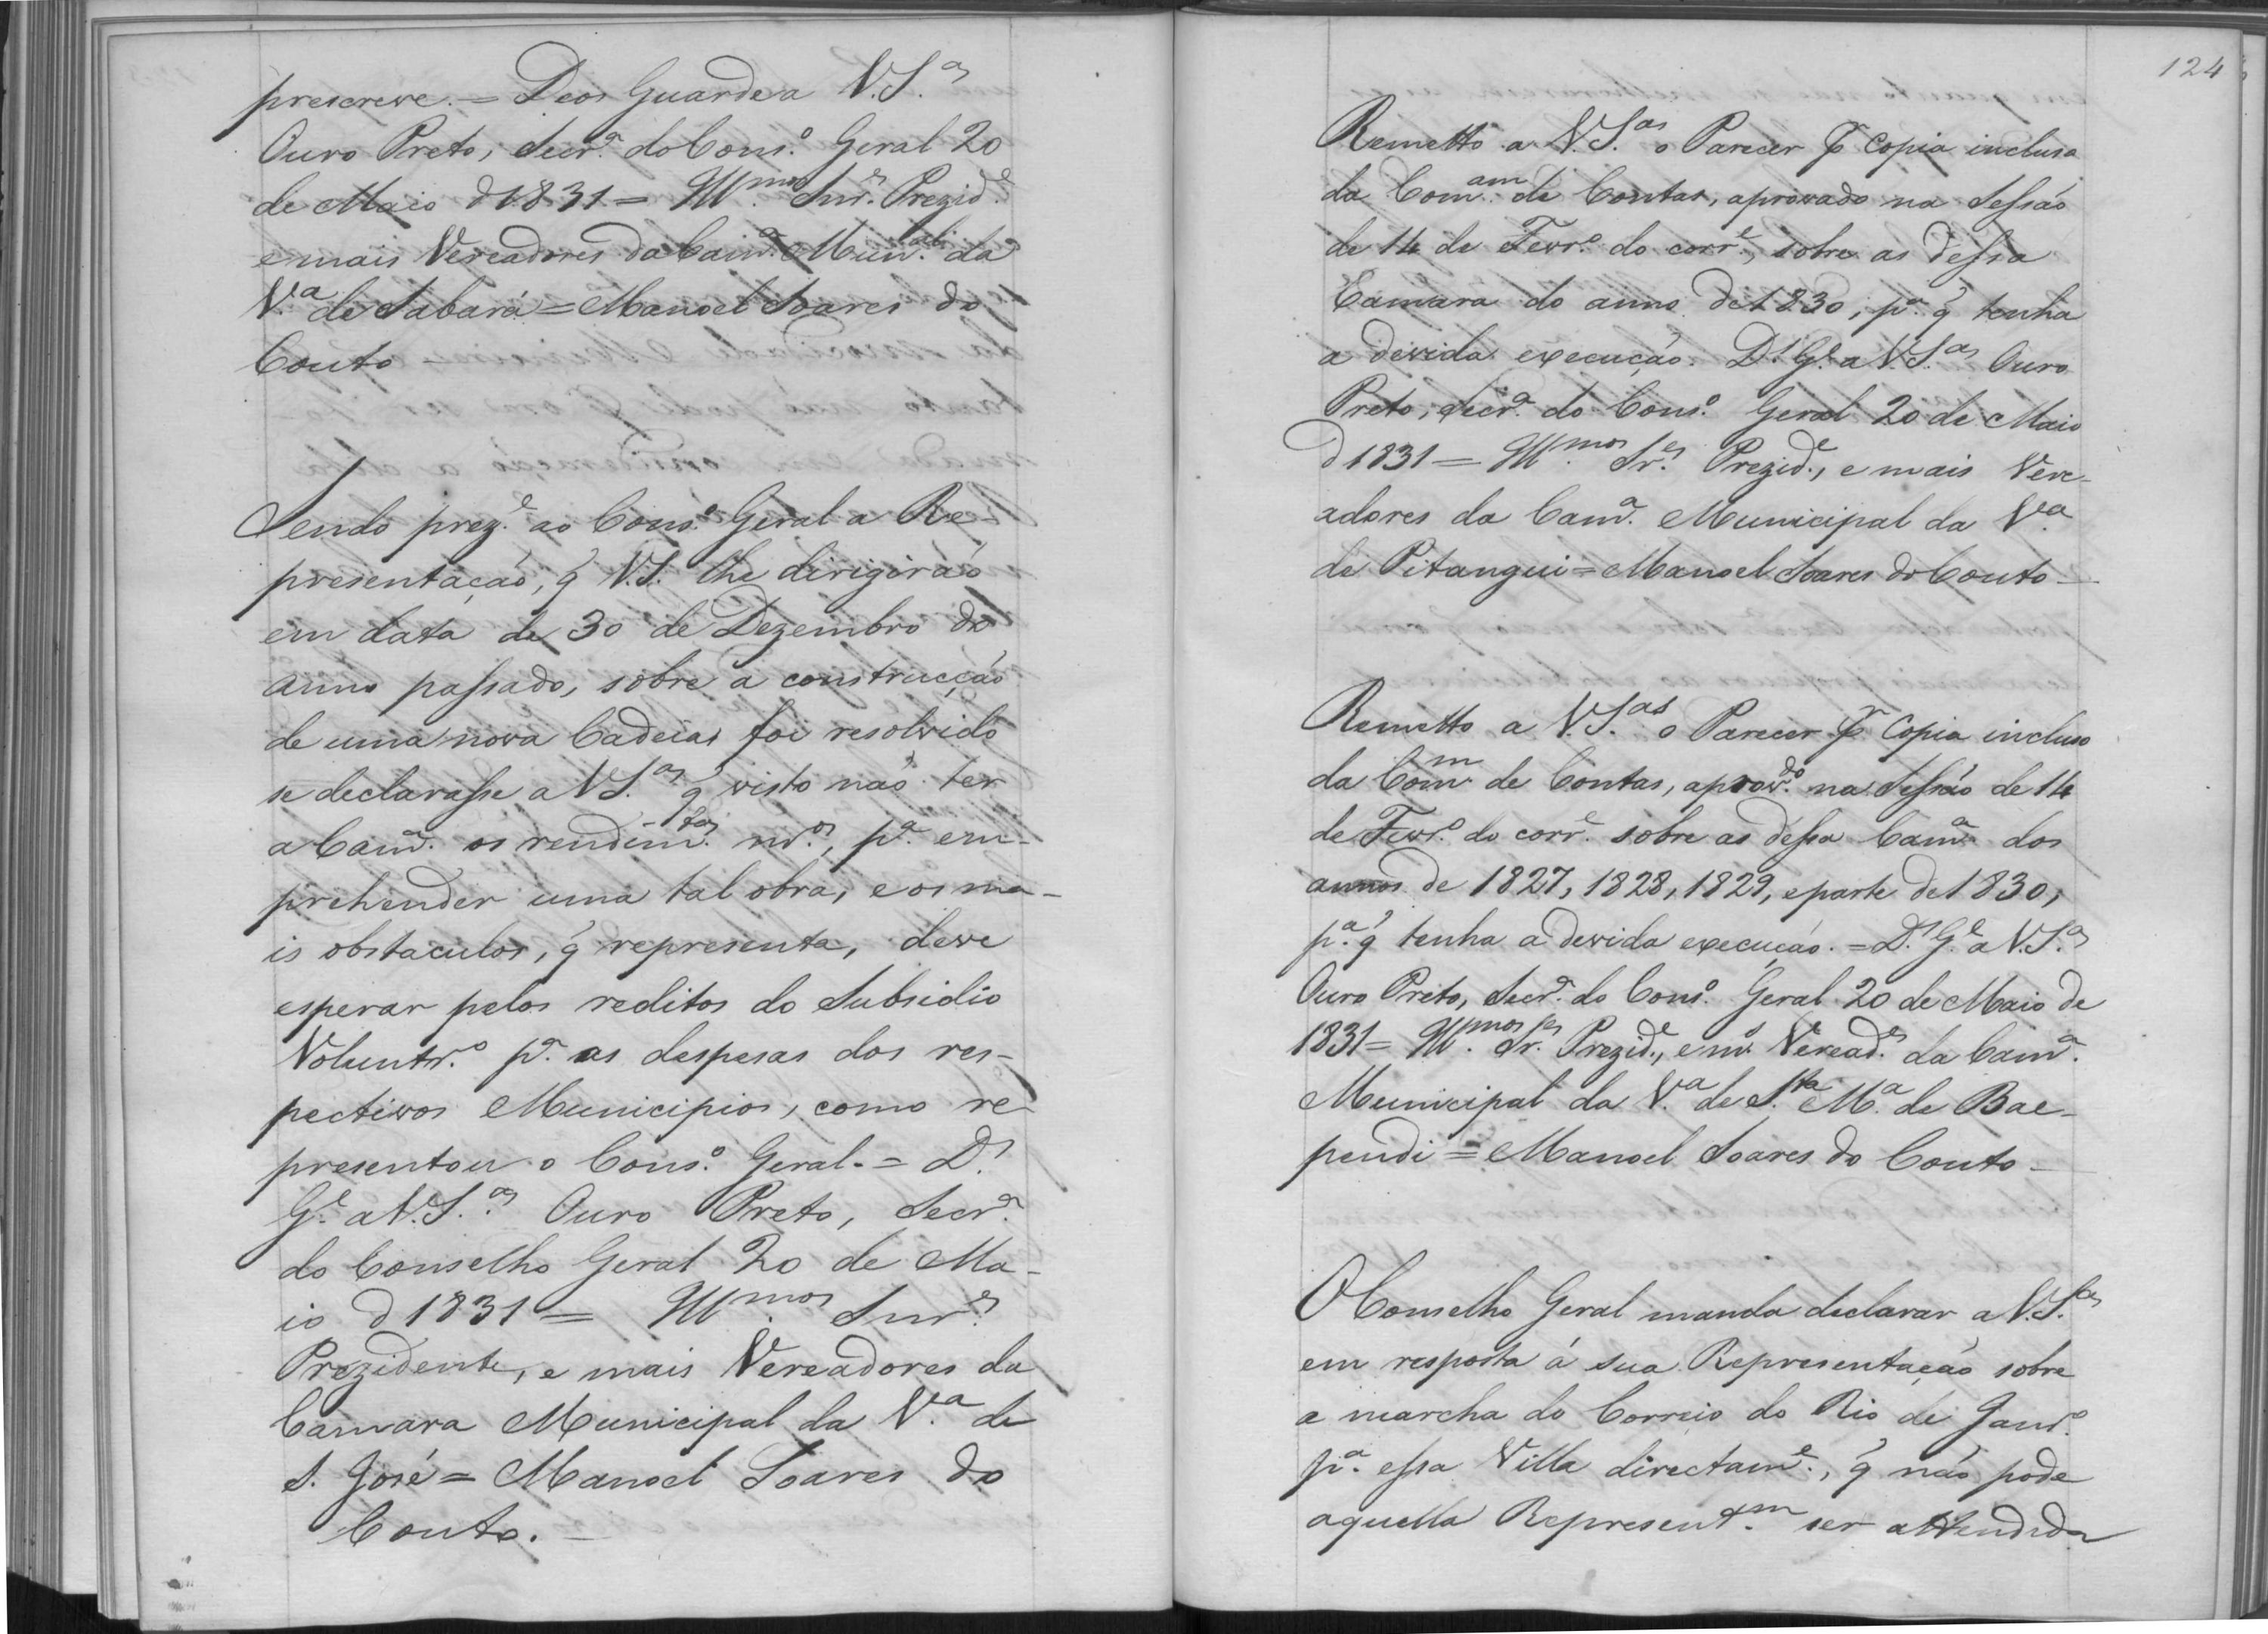 prescreve. = Deos Guarde a V.S.as
Ouro Preto, Secr.a do Cons.o Geral 20
de Maio d 1831 = Ill.mos Snr.es Prezid.e
e mais Vereadores da Cam.a Mun.al da
V.a de Sabará = Manoel Soares do
Couto

Sendo prez.e ao Cons.o Geral a Re-
presentação, q̃ V.S. lhe dirigirão
em data de 30 de Dezembro do
anno passado, sobre a construcção
de uma nova Cadeia, foi resolvido
se declarasse a V.S.as q̃ visto não ter
a Cam.a os rendim.tos nr.os, p.a em-
prehender uma tal obra, e os ma-
is obstaculos, q̃ representa, deve
esperar pelos reditos do Subsidio
Voluntr.o p.a as despesas dos res-
pectivos Municipios, como re-
presentou o Cons.o Geral. = D.s
G.e a V.S.as Ouro Preto, Secr.a
do Conselho Geral 20 de Ma-
io d 1831 = Ill.mos Snr.es
Prezidente, e mais Vereadores da
Camara Municipal da V.a de
S. José = Manoel Soares do
Couto. -

124
Remetto a V.S.as o Parecer p.r Copia inclusa
da Com.am de Contas, aprovado na Sessão
de 14 de Fevr.o do corr.e, sobre as dessa
Camara do anno de 1830, p.a q̃ tenha
a devida execução. D.s G.e a V.S.as Ouro
Preto, Secr.a do Cons.o Geral 20 de Maio
d 1831 = Ill.mos Sr.es Prezid.e, e mais Vere-
adores da Cam.a Municipal da V.a
de Pitangui = Manoel Soares do Couto -

Remetto a V.S.as o Parecer p.r Copia incluso
da Com.m de Contas, aprov.do na Sessão de 14
de Fevr.o do corr.e sobre as dessa Cam.a dos
annos de 1827, 1828, 1829, e parte de 1830,
p.a q̃ tenha a devida execução. = D.s G.e a V.S.as
Ouro Preto, Secr.a do Cons.o Geral 20 de Maio de
1831 = Ill.mos Sr.es Prezid.e, e m.s Veread.es da Cam.a
Municipal da V.a de S.ta M.a de Bae-
pendi = Manoel Soares do Couto -

O Conselho Geral manda declarar a V.S.as
em resposta á sua Representação sobre
a marcha do Correio do Rio de Janr.o
p.a essa Villa directam.e, q̃ não pode
aquella Represent.m ser attendida